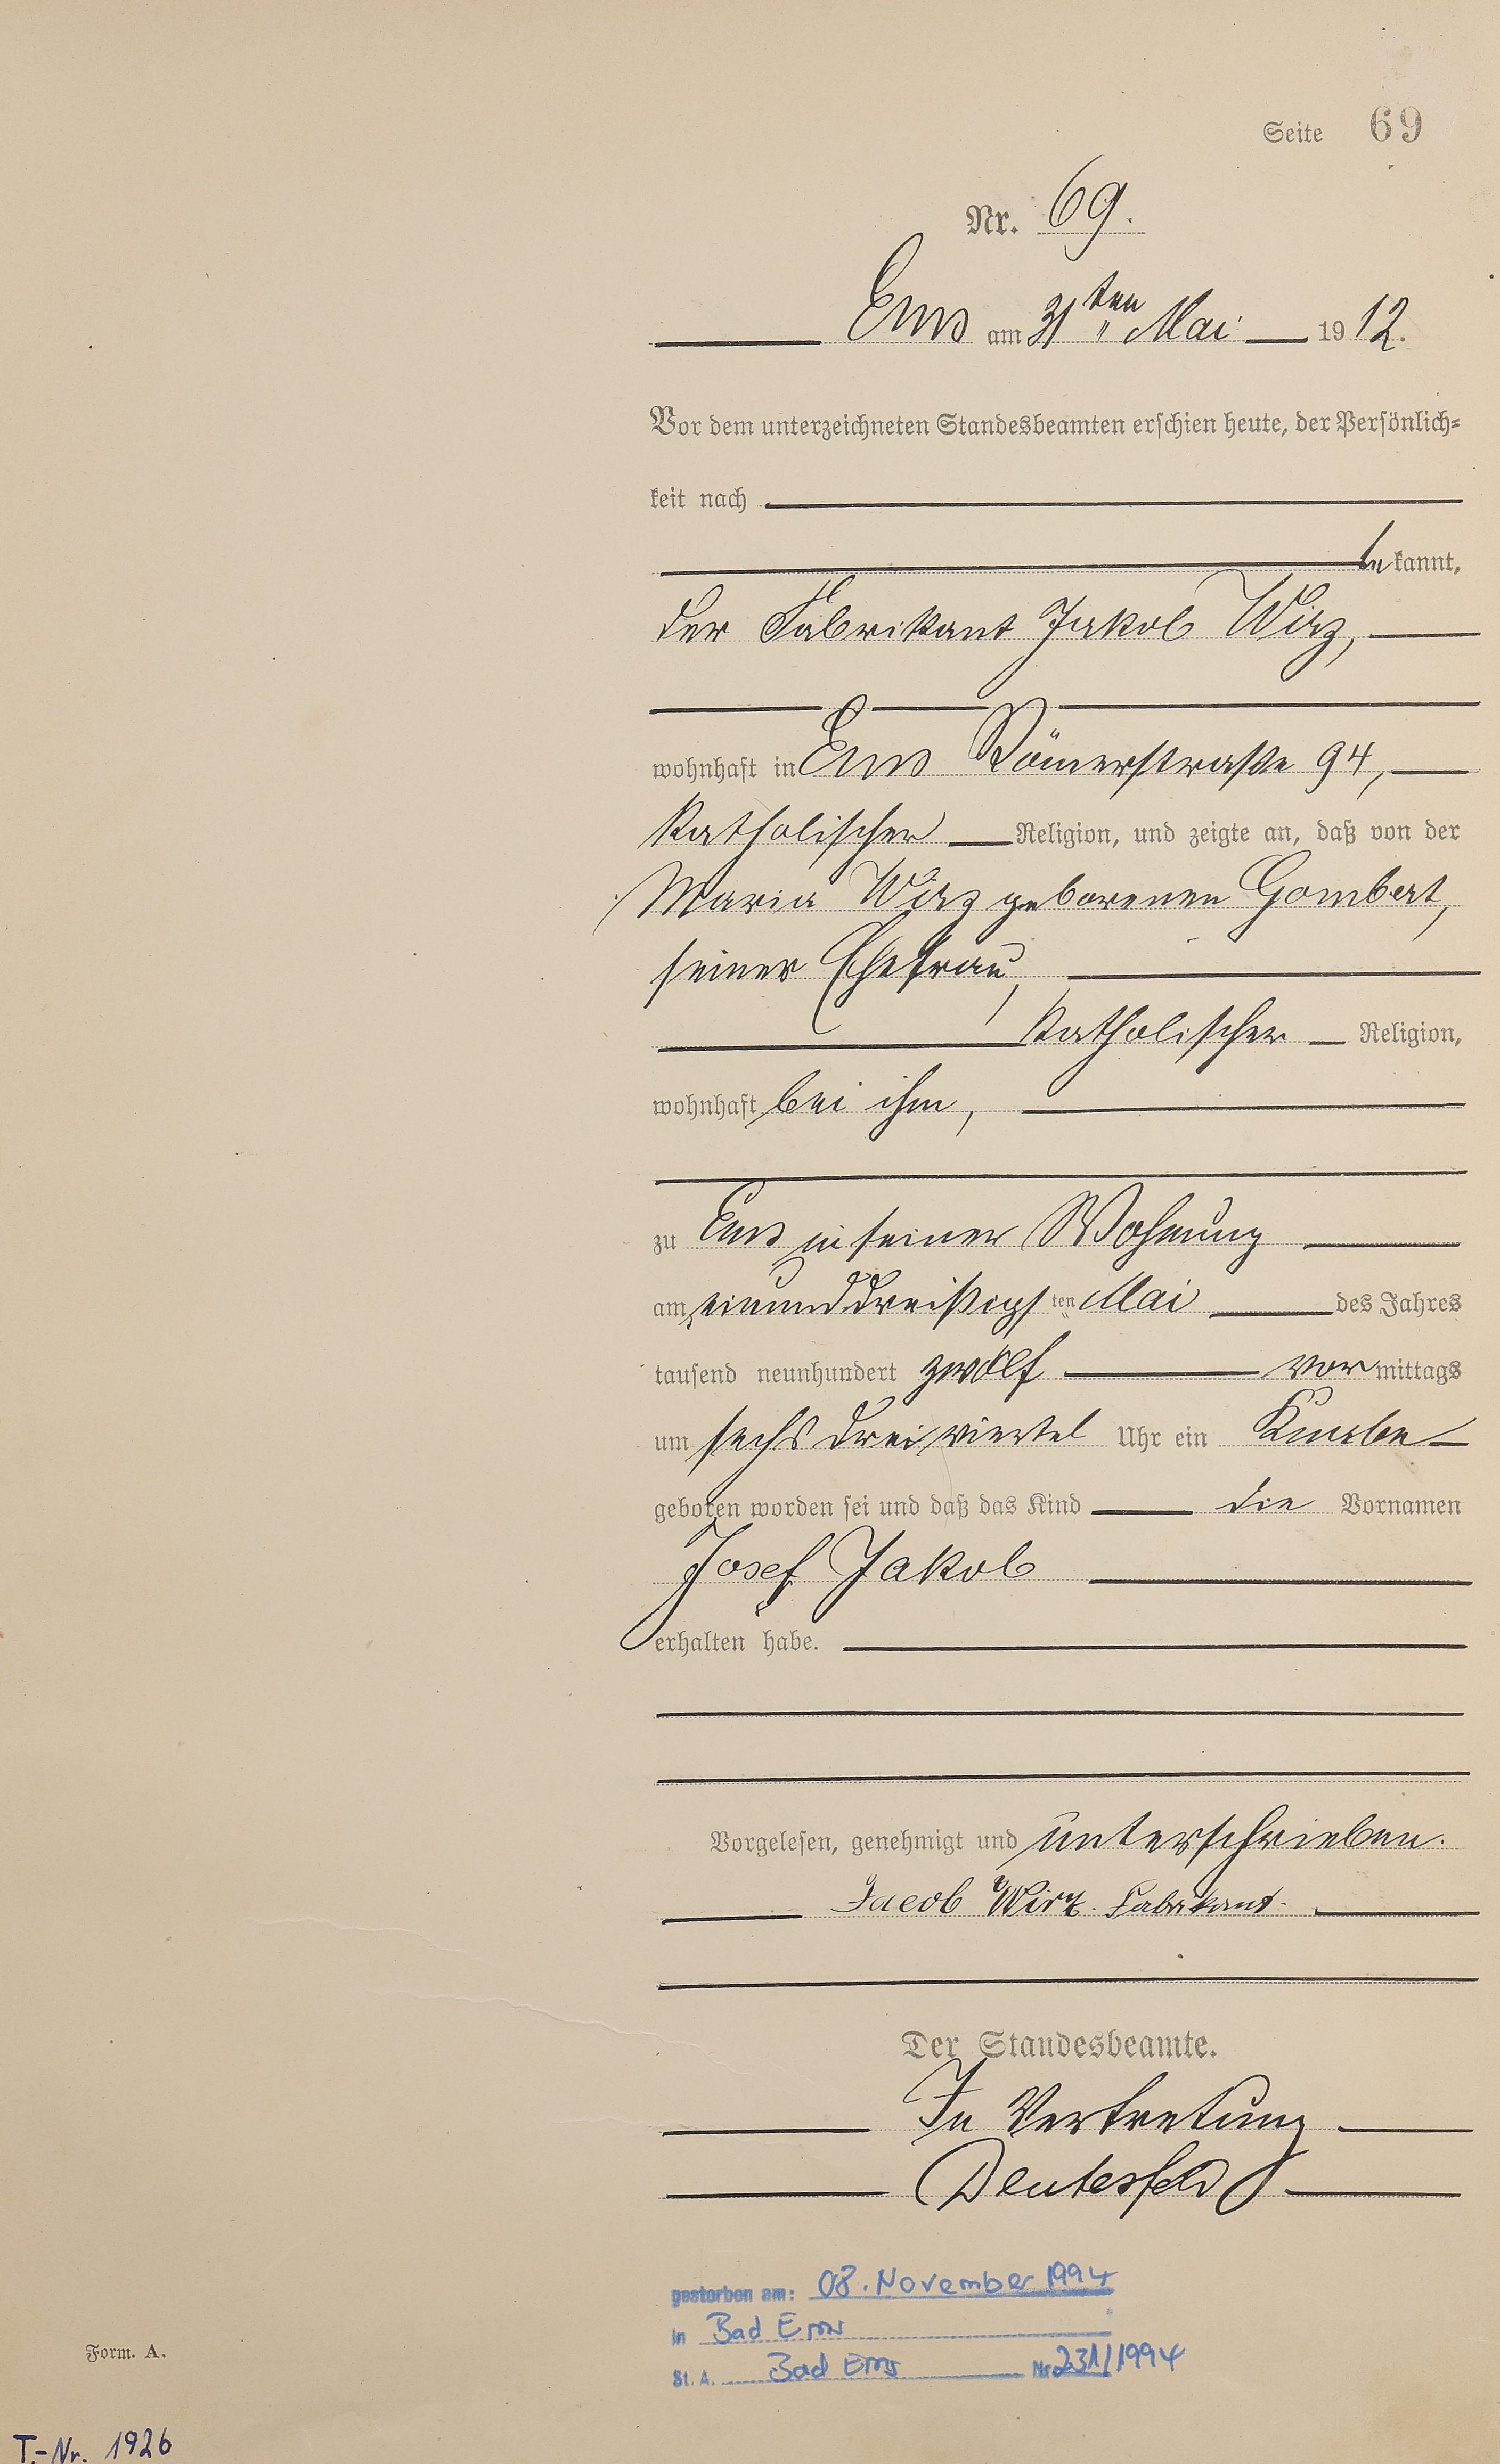 Seite 69
Nr. 69.
Ems am 31ten Mai 1912.
Vor dem unterzeichneten Standesbeamten erschien heute, der Persönlich-
keit nach
bekannt,
der Fabrikant Jakob Wirz,
wohnhaft in Ems Römerstraße 94,
katholischer Religion, und zeigte an, daß von der
Maria Wirz geborenen Gombert,
seiner Ehefrau,
katholischer Religion,
wohnhaft bei ihm,
zu Ems in seiner Wohnung
am einunddreißigsten Mai des Jahres
tausend neunhundert zwölf vormittags
um sechs dreiviertel Uhr ein Knabe
geboren worden sei und daß das Kind die Vornamen
Josef Jakob
erhalten habe.
Vorgelesen, genehmigt und unterschrieben.
Jacob Wirz. Fabrikant.
Der Standesbeamte.
In Vertretung
gestorben am: 08. November 1994
in Bad Ems
St. A. Bad Ems Nr. 231/1994
Form. A.
T.-Nr. 1926